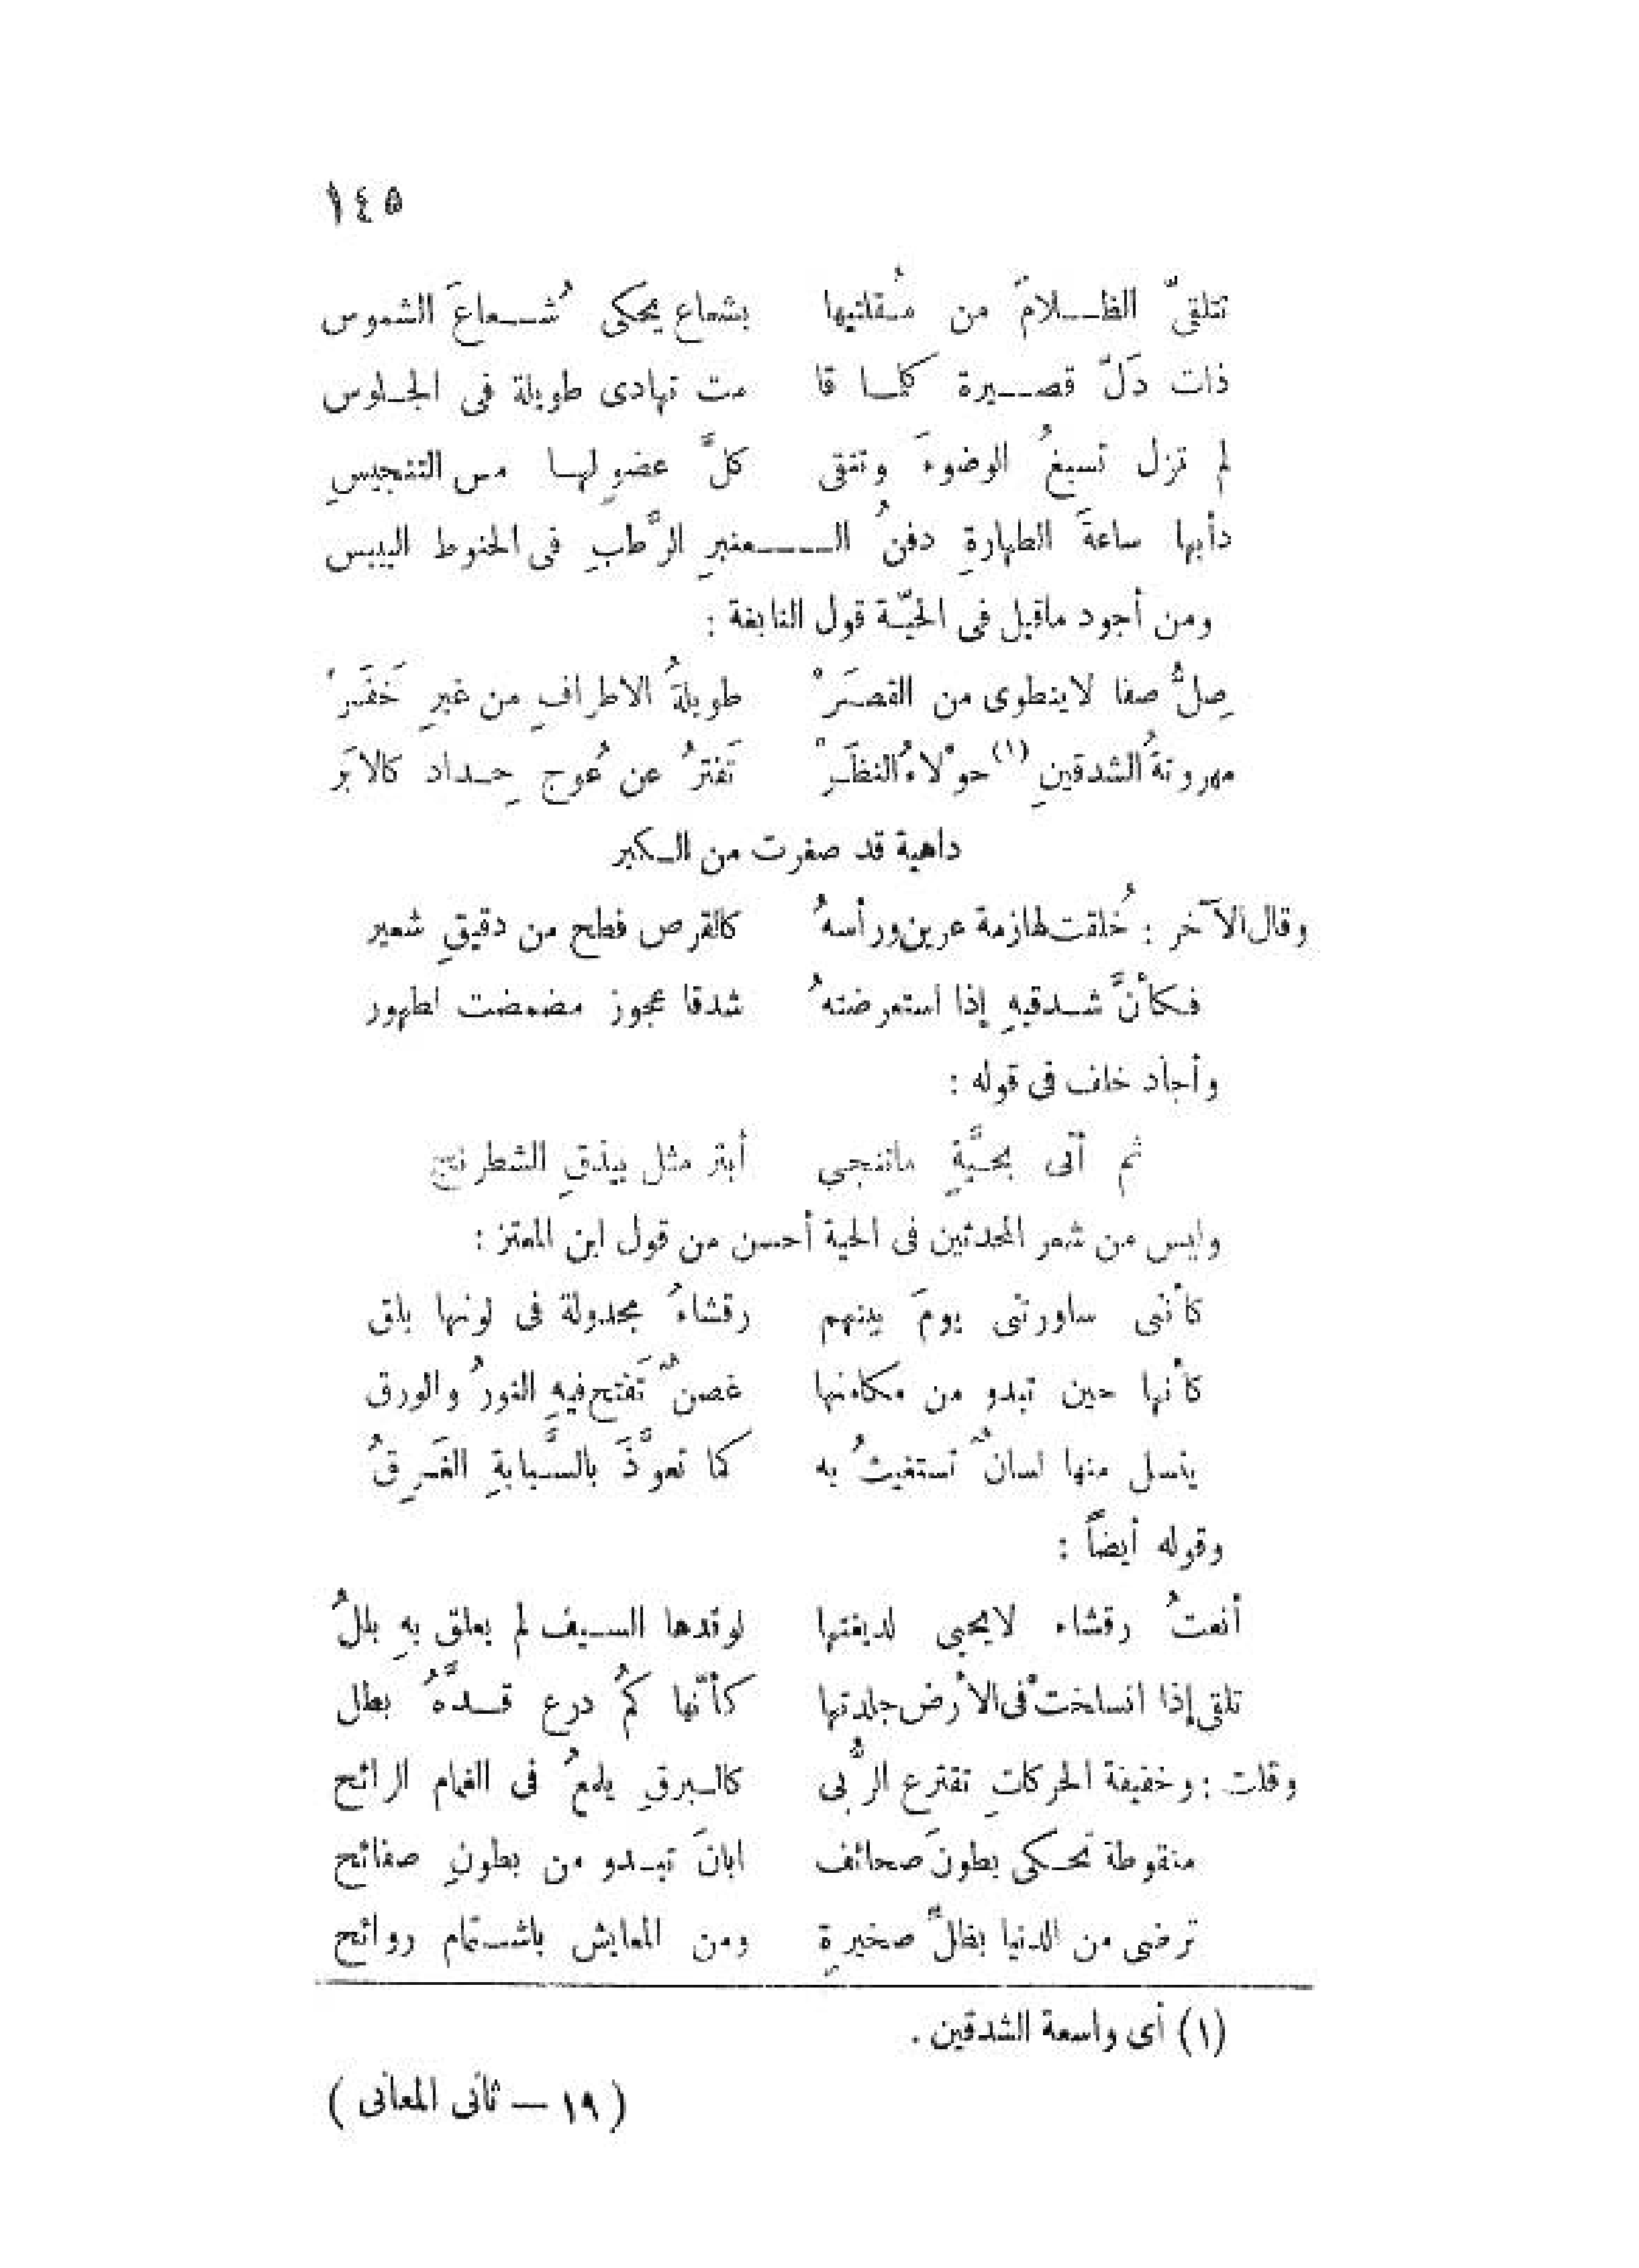 ١٤٥
تتلقىّ الظـلامَ من مُقلتيها بشعاع يحكى شُـعاعَ الشموس
ذات دَلّ قصـيرة كلـا قا مت تهادى طويلة فى الجـلوس
لم تزل تسبغُ الوضوءَ وتنقى كلَّ عضوٍ لهـا من التنجيسِ
دأبها ساعةَ الطهارةِ دفنُ الـعنبرِ الرَّطبِ فى الحنوط اليبيس
ومن أجود ماقيل فى الحيّـة قول النابغة :
صِلُّ صفا لاينطوى من القصَـرْ طويلةُ الاطرافِ من غيرِ خَفَـرْ
مهروتةُ الشدقينِ (١) حوْلاءُ النظَـرْ تَفترُ عن عُوج حِـداد كالابَر
داهية قد صغرت من الـكبر
وقال الآخر : خُلقت لهازمة عرين ورأسهُ كالقرص فطح من دقيقِ شعير
فـكأنَّ شـدقيهِ إذا استعرضتهُ شدقا عجوز مضمضت لطهور
وأجاد خلف فى قوله :
ثم أتى بحـيَّةٍ ماتنجى أبتر مثل بيذقِ الشطرنج
وليس من شعر المحدثين فى الحية أحسن من قول ابن المعتز :
كأننى ساورتنى يومَ بينهم رقشاءُ مجدولة فى لونها بلق
كأنها حين تبدو من مكامنها غصنٌ تَفتح فيهِ النورُ والورق
ينسل منها لسانٌ تستغيثُ به كما تعوَّذَ بالسَّـبابةِ الغَـرِقُ
وقوله أيضاً :
أنعتُ رقشاء لايحيى لديغتها لوقدها السـيف لم يعلق بهِ بللُ
تلقى إذا انسلختْ فى الأرض جلدتها كأنّها كمُ درع قـدَّهُ بطل
وقلت : وخفيفة الحركاتِ تفترع الرُّبى كالـبرقِ يلمعُ فى الغمام الرائح
منقوطة تحـكى بطونَ صحائف ابانَ تبـدو من بطونِ صفائح
ترضى من الدنيا بظلٍّ صخيرةٍ ومن المعايش باشـتمام روائح
(١) أى واسعة الشدقين .
( ١٩ — ثانى المعانى )